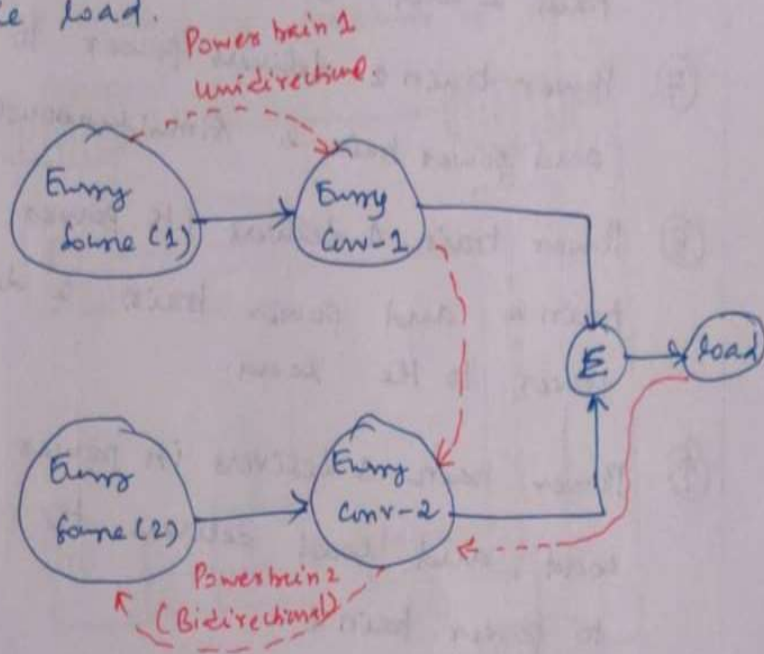 le load.
Power train 1
Unidirectional
Energy
Source (1)
Energy
Conv-1
E
load
Energy
Source (2)
Energy
Conv-2
Power train 2
(Bidirectional)